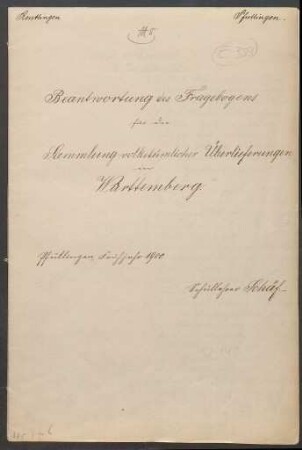 Reutlingen Pfullingen.
#5
Beantwortung des Fragebogens
für die
Sammlung volkstümlicher Überlieferungen
in
Württemberg.
Pfullingen Frühjahr 1900
Schullehrer